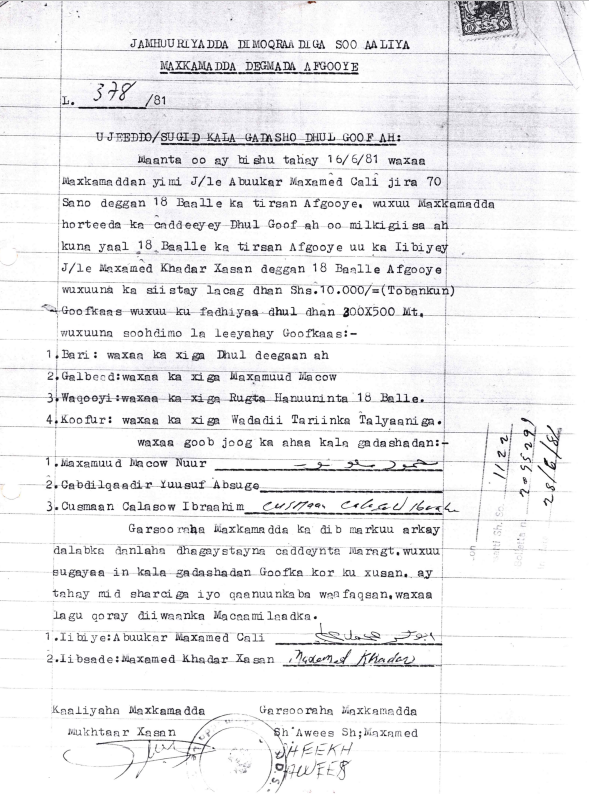 JAMHUURIYADDA DIMOQRAADIGA SOO AALIYA
MAXKAMADDA DEGMADA AFGOOYE
L. 378 /81
UJEEDDO/SUGID KALA GADASHO DHUL GOOF AH:
Maanta oo ay bishu tahay 16/6/81 waxaa
Maxkamaddan yimi J/le Abuukar Maxamed Cali jira 70
Sano deggan 18 Baalle ka tirsan Afgooye. wuxuu Maxkamadda
horteeda ka caddeeyey Dhul Goof ah oo milkigiisa ah
kuna yaal 18 Baalle ka tirsan Afgooye uu ka Iibiyey
J/le Maxamed Khadar Xasan deggan 18 Baalle Afgooye
wuxuuna ka siistay lacag dhan Shs.10.000/=(Tobankun)
Goofkaas wuxuu ku fadhiyaa dhul dhan 300X500 Mt.
wuxuuna soohdimo la leeyahay Goofkaas:-
1.Bari: waxaa ka xiga Dhul deegaan ah
2.Galbeed:waxaa ka xiga Maxamuud Macow
3.Waqooyi:waxaa ka xiga Rugta Hanuuninta 18 Balle.
4.Koofur: waxaa ka xiga Wadadii Tariinka Talyaaniga.
waxaa goob joog ka ahaa kala gadashadan:-
1.Maxamuud Macow Nuur
2.Cabdilqaadir Yuusuf Absuge
3.Cusmaan Calasow Ibraahim Cusmaan
Garsooraha Maxkamadda ka dib markuu arkay
dalabka danlaha dhagaystayna caddeynta Maragt.wuxuu
sugayaa in kala gadashadan Goofka kor ku xusan. ay
tahay mid sharciga iyo qaanuunkaba waafaqsan.waxaa
lagu qoray diiwaanka Macaamilaadka.
1.Iibiye:Abuukar Maxamed Cali
2.Iibsade:Maxamed Khadar Xasan Maxamed Khadar
Kaaliyaha Maxkamadda Garsooraha Maxkamadda
Mukhtaar Xasan Sh'Awees Sh;Maxamed
SHEEKH
AWEES
1122
2055291
28/9/81